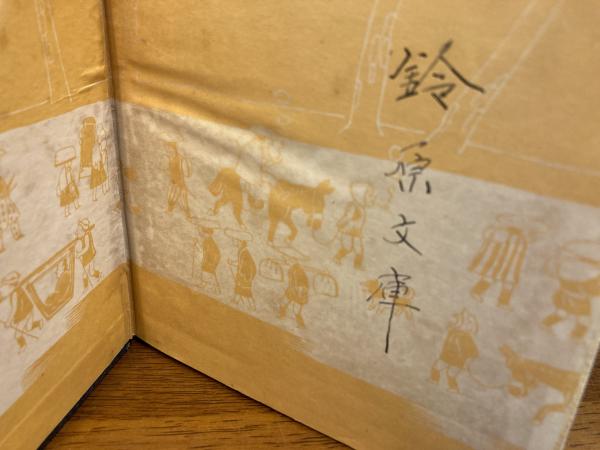 鈴原文庫